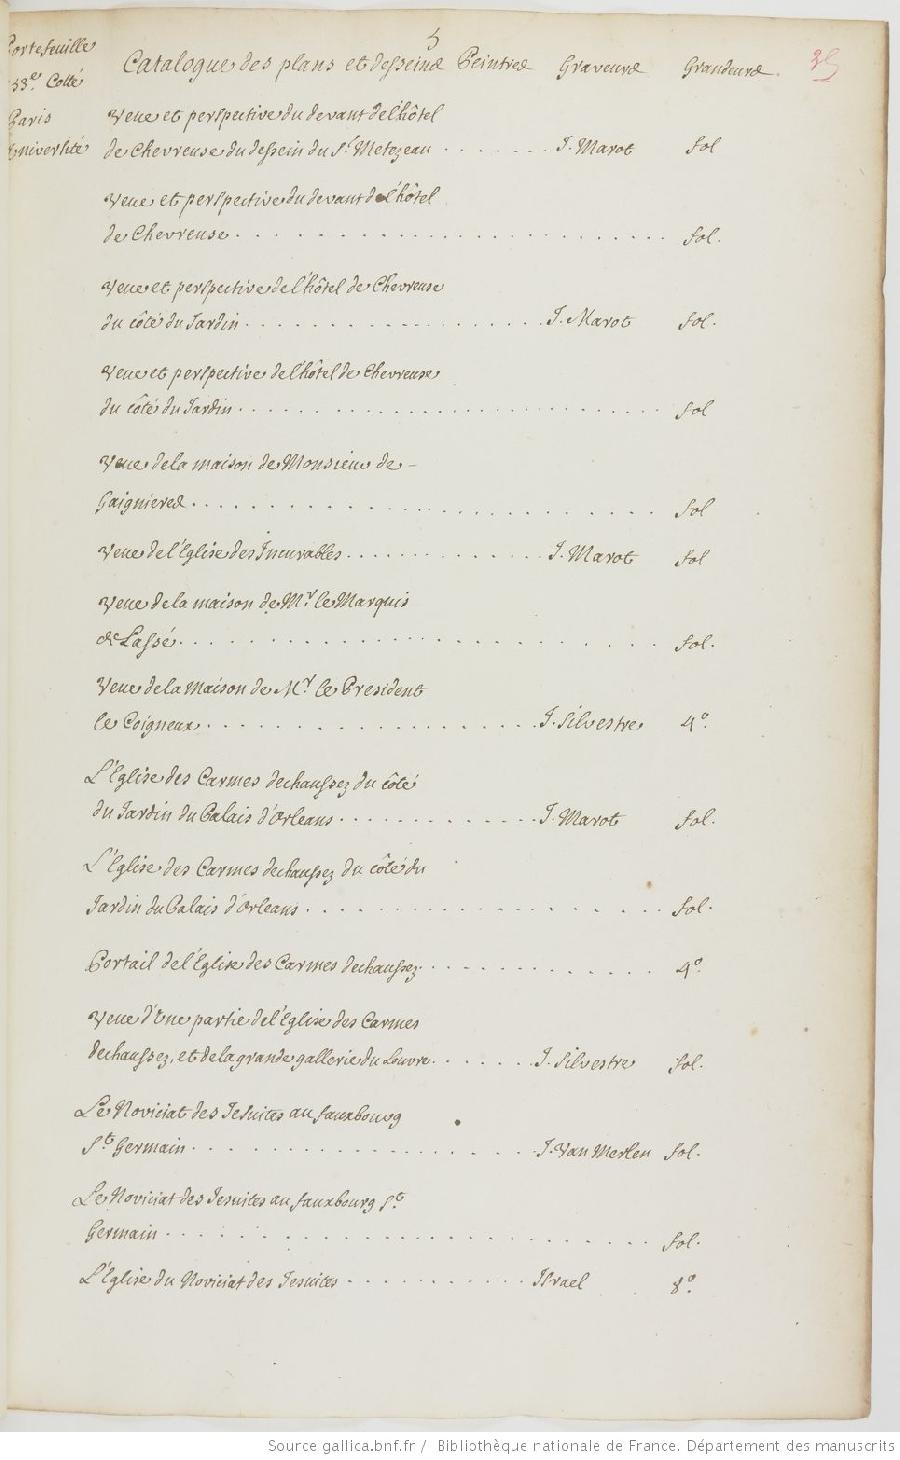 5
Portefeuille Catalogue des plans et desseins Peintres Graveurs Grandeurs. 35
33e. Cotté
Paris Veue et perspective du devant de l'hôtel
Université de Chevreuse du dessein du Sr. Metezeau . . . . . . . J. Marot fol
Veue et perspective du devant de l'hôtel
de Chevreuse . . . . . . . . . . . . . . . . . . fol.
Veue et perspective de l'hôtel de Chevreuse
du côté du Jardin . . . . . . . . . . . . . J. Marot fol.
Veue et perspective de l'hôtel de Chevreuse
du côté du Jardin . . . . . . . . . . . . . . . . . . fol
Veue de la maison de Monsieur de -
Gaignieres . . . . . . . . . . . . . . . . . . . fol
Veue de l'Eglise des Incurables . . . . . . . . . J. Marot fol
Veue de la maison de Mr. le Marquis
de Lassé . . . . . . . . . . . . . . . . . . . fol.
Veue de la maison de Mr. le President
le Coigneux . . . . . . . . . . . . . . . J. Silvestre 4o.
L'Eglise des Carmes dechaussez du côté
du Jardin du Palais d'Orleans . . . . . . . . . . J. Marot fol.
L'Eglise des Carmes dechaussez du côté du
Jardin du Palais d'Orleans . . . . . . . . . . . . . . fol.
Portail de l'Eglise des Carmes dechaussez . . . . . . . . . . 4o.
Veue d'Une partie de l'Eglise des Carmes
dechaussez, et de la grande gallerie du Louvre . . . . . J. Silvestre fol.
Le Noviciat des Jesuites au fauxbourg
St. Germain . . . . . . . . . . . . . . . . J. Van Merlen fol.
Le Noviciat des Jesuites au fauxbourg St.
Germain . . . . . . . . . . . . . . . . . . . . fol.
L'Eglise du Noviciat des Jesuites . . . . . . . . . Israel 8o.
Source gallica.bnf.fr / Bibliothèque nationale de France. Département des manuscrits